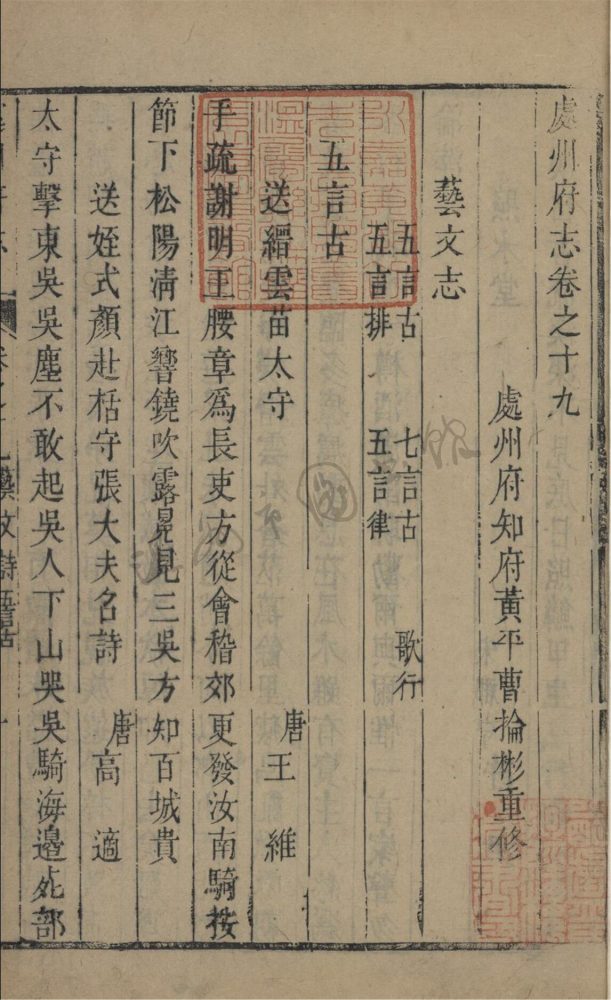 處州府志卷之十九
處州府知府黃平曹掄彬重修
藝文志
五言古 七言古 歌行
五言排 五言律
五言古
送縉雲苗太守 唐王維
手疏謝明王腰章爲長吏方從會稽郊更發汝南騎按
節下松陽淸江響鐃吹露冕見三吳方知百城貴
送姪式顏赴栝守張大夫名詩 唐高適
太守擊東吳吳塵不敢起吳人下山哭吳騎海邊死部